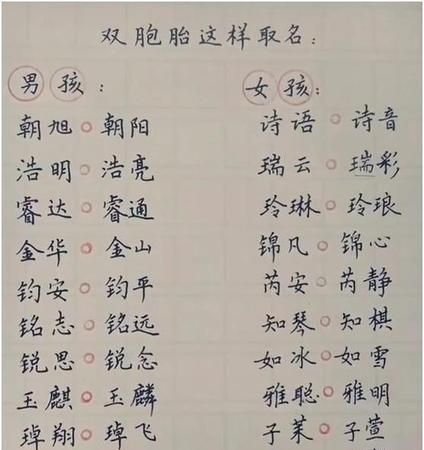 双胞胎这样取名：
男孩： 女孩：
朝旭○朝阳 诗语○诗音
浩明○浩亮 瑞云○瑞彩
睿达○睿通 玲琳○玲琅
金华○金山 锦凡○锦心
钧安○钧平 芮安○芮静
铭志○铭远 知琴○知棋
锐思○锐念 如冰○如雪
玉麒○玉麟 雅聪○雅明
琸翔○琸飞 子茉○子萱